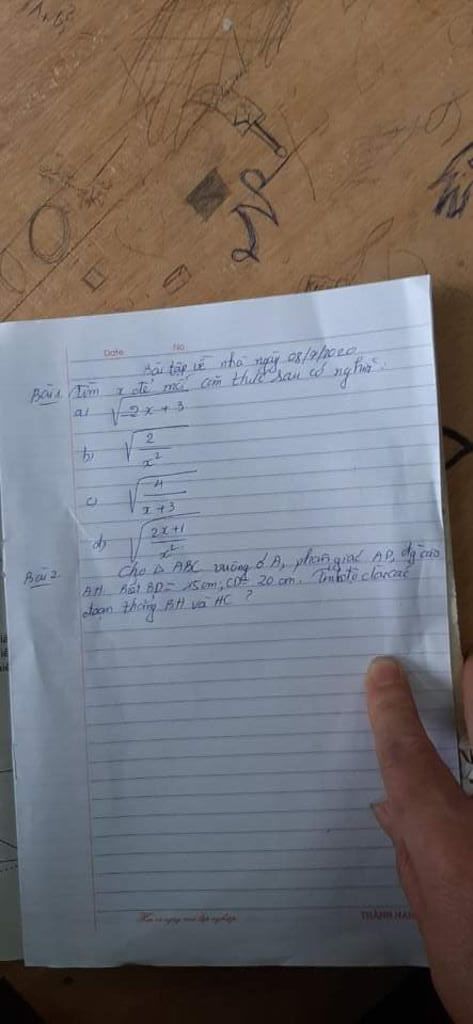 Date No
Bài tập về nhà ngày 08/9/2020
Bài 1. Tìm x để mỗi căn thức sau có nghĩa:
a) √-2x+3
b) √2/x²
c) √4/x+3
d) √2x+1/x²
Bài 2. Cho Δ ABC vuông ở A, phân giác AD, đg cao
AH. Biết BD = 15cm; CD = 20 cm. Tính độ dài các
đoạn thẳng BH và HC ?